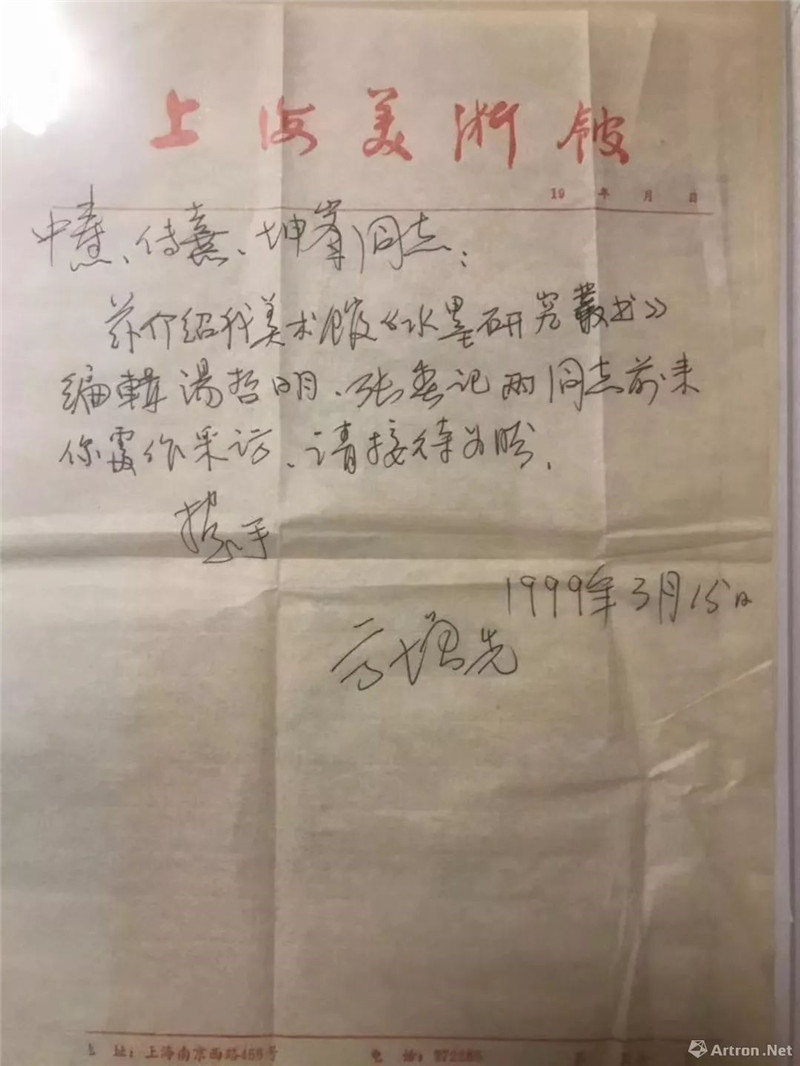 上海美術館
19 年 月 日
中焘、传熹、坤峯同志：
兹介绍我美术馆《水墨研究叢书》
编輯湯哲明、张春记两同志前来
你處作采访、请接待为盼，
握手
1999年3月15日
方增先
址：上海南京西路456号 电 话：
Artron.Net